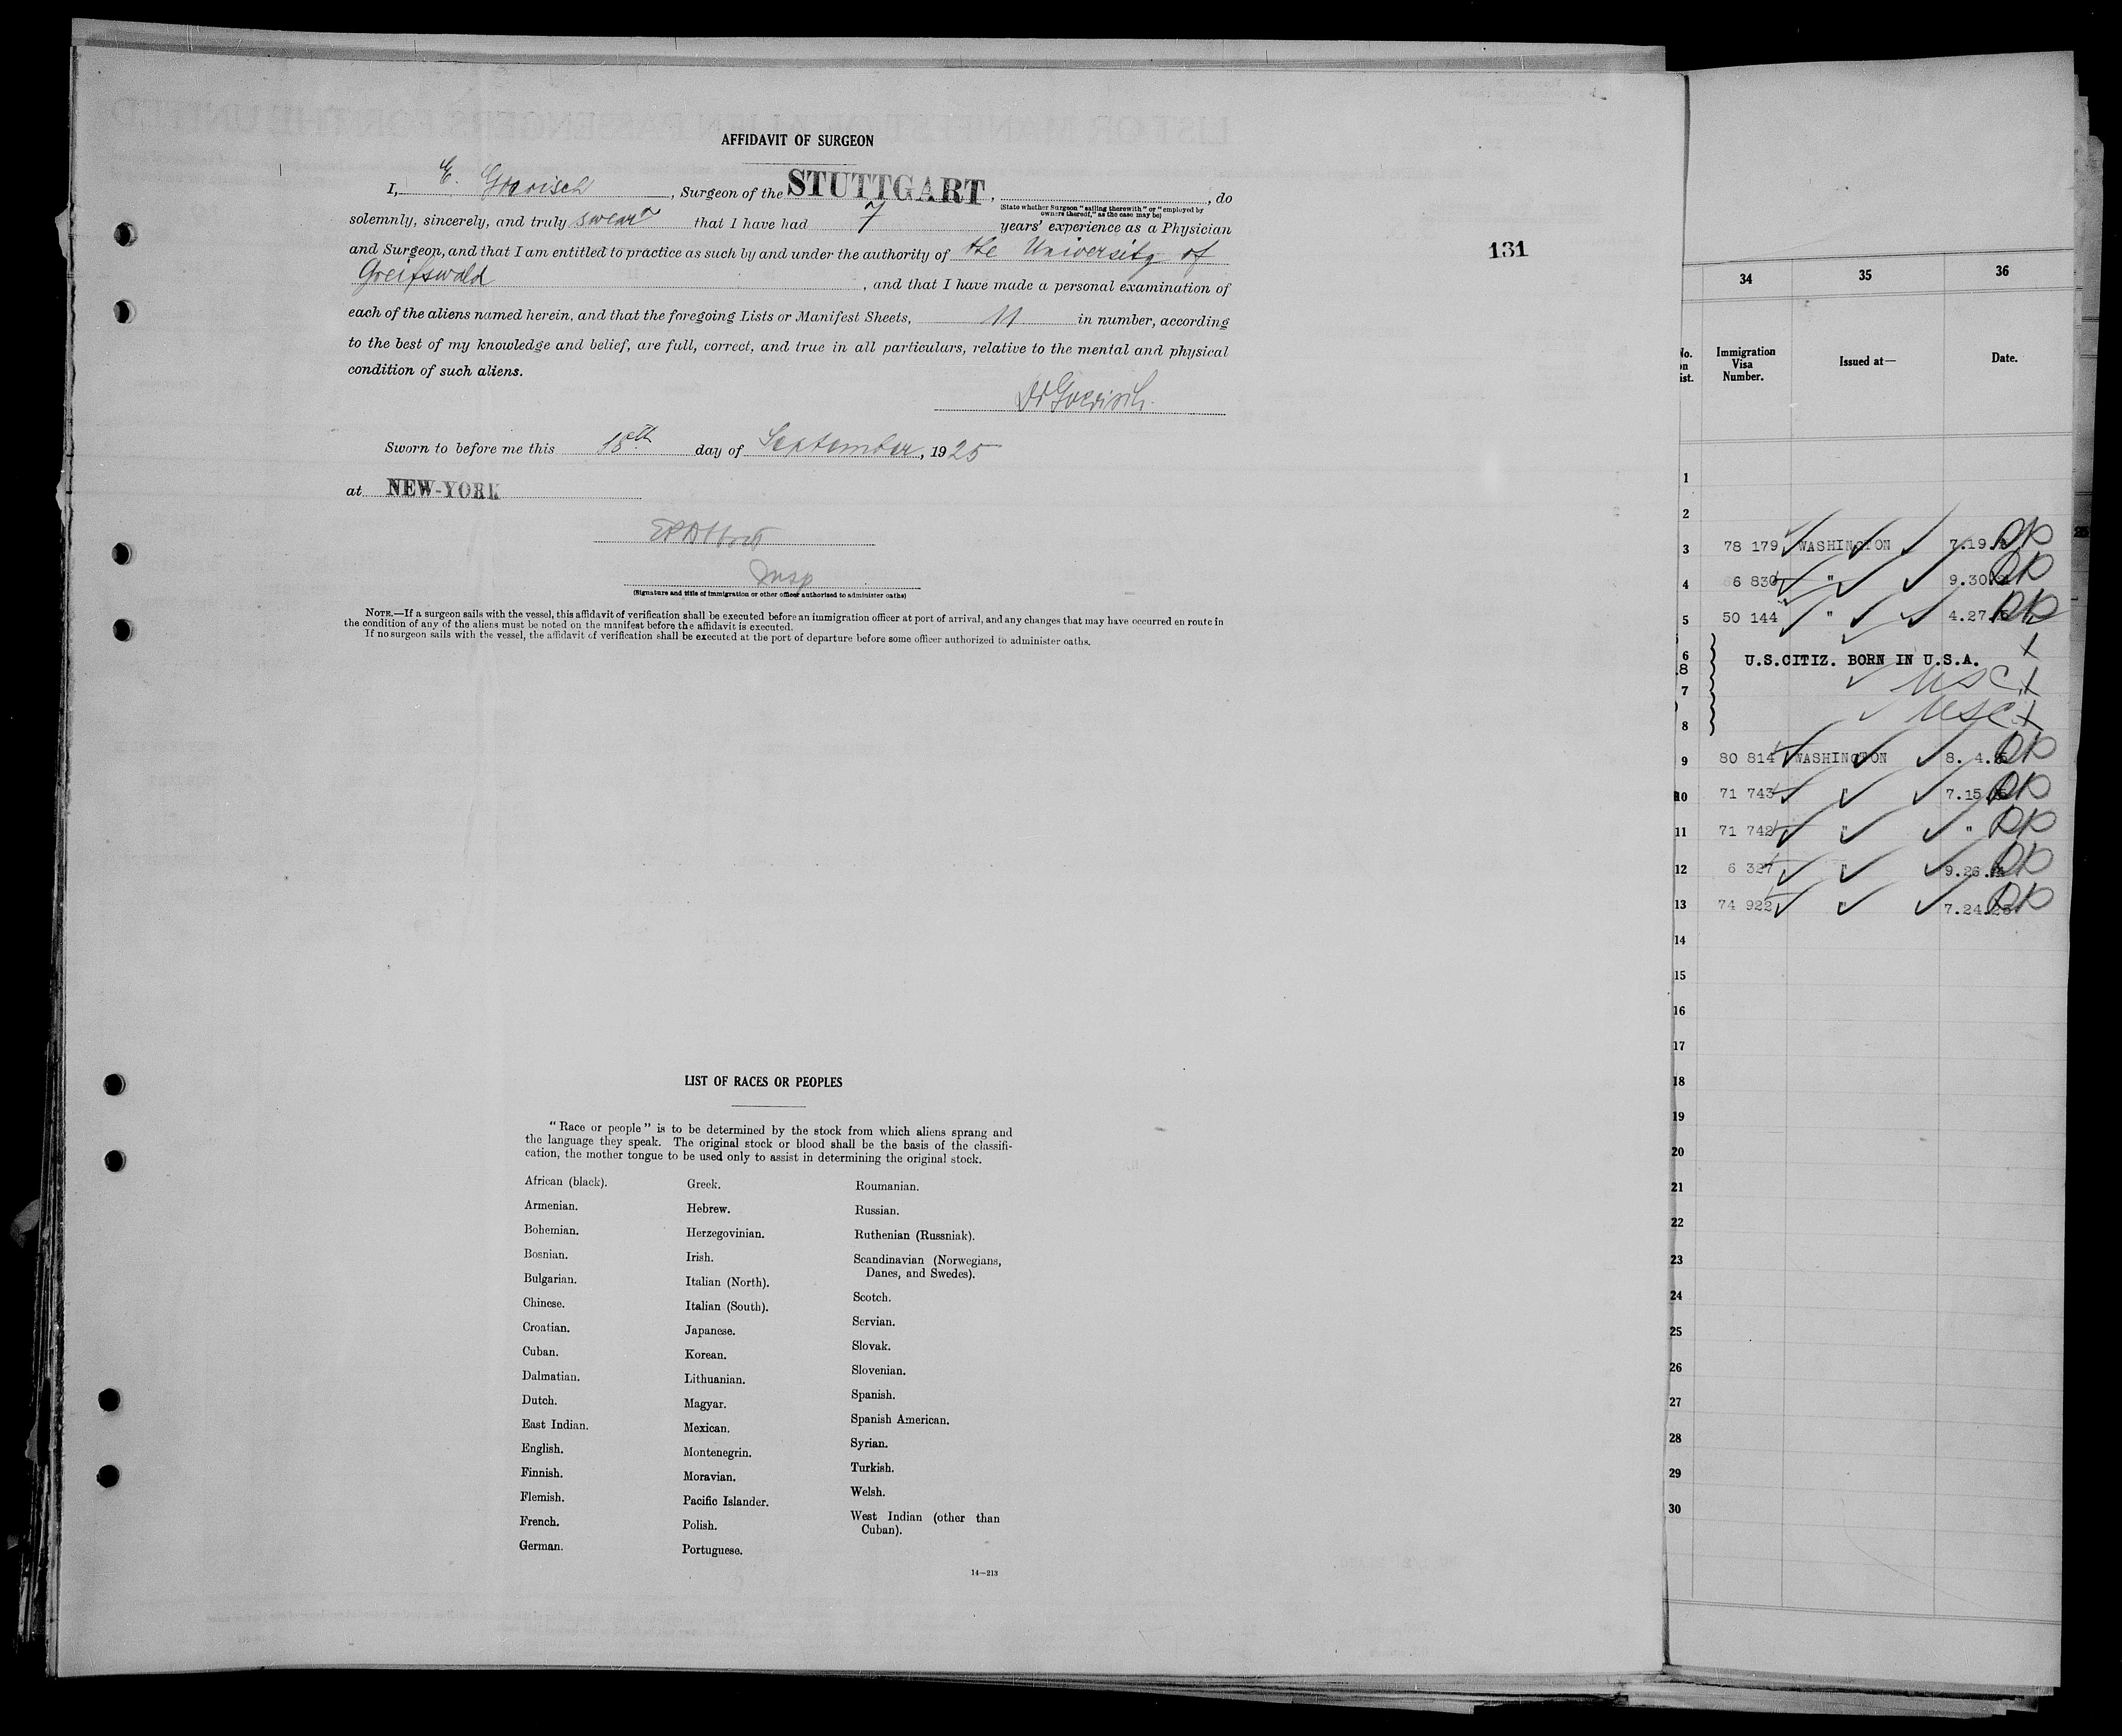 AFFIDAVIT OF SURGEON
I, E. Goerisch, Surgeon of the STUTTGART, , do
(State whether Surgeon "sailing therewith" or "employed by owners thereof," as the case may be)
solemnly, sincerely, and truly swear that I have had 7 years' experience as a Physician
and Surgeon, and that I am entitled to practice as such by and under the authority of the University of
Greifswald, and that I have made a personal examination of
each of the aliens named herein, and that the foregoing Lists or Manifest Sheets, 11 in number, according
to the best of my knowledge and belief, are full, correct, and true in all particulars, relative to the mental and physical
condition of such aliens.
Dr Goerisch.
Sworn to before me this 15th day of September, 1925
at NEW-YORK
Insp
(Signature and title of immigration or other officer authorized to administer oaths)
NOTE.—If a surgeon sails with the vessel, this affidavit of verification shall be executed before an immigration officer at port of arrival, and any changes that may have occurred en route in
the condition of any of the aliens must be noted on the manifest before the affidavit is executed.
If no surgeon sails with the vessel, the affidavit of verification shall be executed at the port of departure before some officer authorized to administer oaths.
131
LIST OF RACES OR PEOPLES
"Race or people" is to be determined by the stock from which aliens sprang and
the language they speak. The original stock or blood shall be the basis of the classifi-
cation, the mother tongue to be used only to assist in determining the original stock.
African (black).
Armenian.
Bohemian.
Bosnian.
Bulgarian.
Chinese.
Croatian.
Cuban.
Dalmatian.
Dutch.
East Indian.
English.
Finnish.
Flemish.
French.
German.
Greek.
Hebrew.
Herzegovinian.
Irish.
Italian (North).
Italian (South).
Japanese.
Korean.
Lithuanian.
Magyar.
Mexican.
Montenegrin.
Moravian.
Pacific Islander.
Polish.
Portuguese.
Roumanian.
Russian.
Ruthenian (Russniak).
Scandinavian (Norwegians,
Danes, and Swedes).
Scotch.
Servian.
Slovak.
Slovenian.
Spanish.
Spanish American.
Syrian.
Turkish.
Welsh.
West Indian (other than
Cuban).
14—213
34 35 36
Immigration Visa Number. Issued at— Date.
1
2
3 78 179 WASHINGTON 7.19.
4 6 830 " 9.30.
5 50 144 " 4.27.
6 U.S.CITIZ. BORN IN U.S.A.
7 USC
8 USC
9 80 814 WASHINGTON 8. 4.
10 71 743 " 7.15
11 71 742 " "
12 6 327 " 9.26.
13 74 922 " 7.24.25
14
15
16
17
18
19
20
21
22
23
24
25
26
27
28
29
30